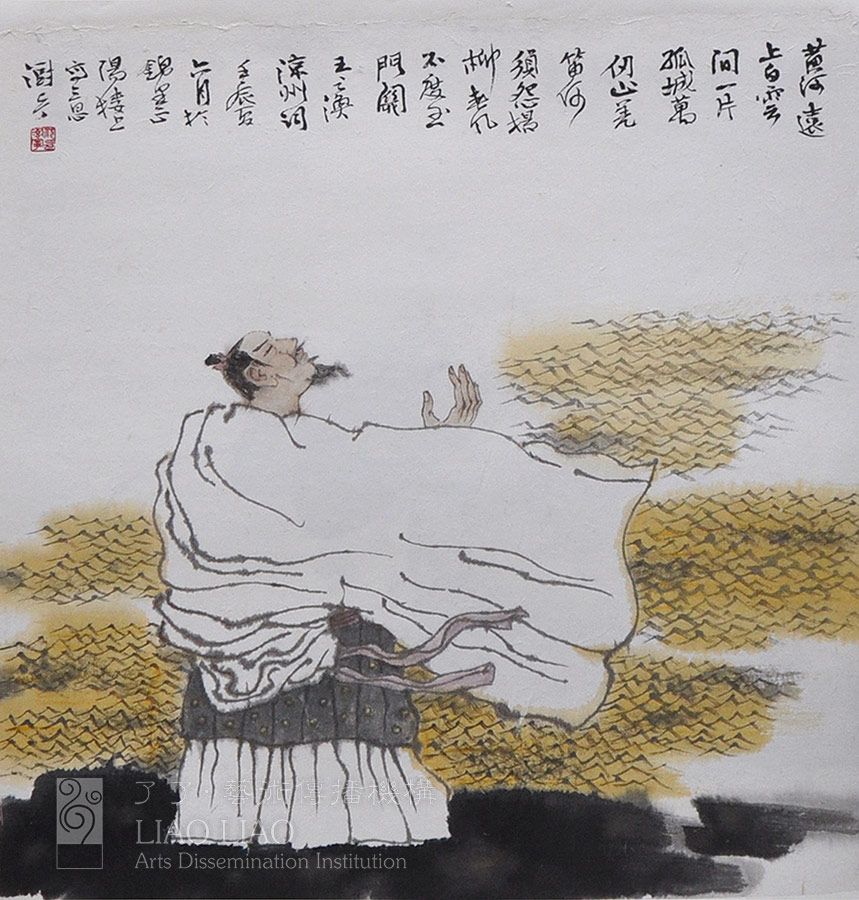 黄河遠
上白雲
間一片
孤城萬
仞山羌
笛何
須怨楊
柳春风
不度玉
門關
王之渙
涼州詞
壬辰
六月於
錦里
陽樓上
寫
了了·藝術傳播機構
LIAO LIAO
Arts Dissemination Institution